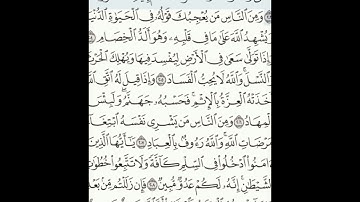 وَمِنَ ٱلنَّاسِ مَن يُعۡجِبُكَ قَوۡلُهُۥ فِي ٱلۡحَيَوٰةِ ٱلدُّنۡيَا
وَيُشۡهِدُ ٱللَّهَ عَلَىٰ مَا فِي قَلۡبِهِۦ وَهُوَ أَلَدُّ ٱلۡخِصَامِ
وَإِذَا تَوَلَّىٰ سَعَىٰ فِي ٱلۡأَرۡضِ لِيُفۡسِدَ فِيهَا وَيُهۡلِكَ ٱلۡحَرۡثَ
وَٱلنَّسۡلَۚ وَٱللَّهُ لَا يُحِبُّ ٱلۡفَسَادَ وَإِذَا قِيلَ لَهُ ٱتَّقِ ٱللَّهَ
أَخَذَتۡهُ ٱلۡعِزَّةُ بِٱلۡإِثۡمِۚ فَحَسۡبُهُۥ جَهَنَّمُۖ وَلَبِئۡسَ
ٱلۡمِهَادُ وَمِنَ ٱلنَّاسِ مَن يَشۡرِي نَفۡسَهُ ٱبۡتِغَآءَ
مَرۡضَاتِ ٱللَّهِۚ وَٱللَّهُ رَءُوفُۢ بِٱلۡعِبَادِ يَٰٓأَيُّهَا ٱلَّذِينَ
ءَامَنُواْ ٱدۡخُلُواْ فِي ٱلسِّلۡمِ كَآفَّةٗ وَلَا تَتَّبِعُواْ خُطُوَٰتِ
ٱلشَّيۡطَٰنِۚ إِنَّهُۥ لَكُمۡ عَدُوّٞ مُّبِينٞ فَإِن زَلَلۡتُم مِّنۢ بَعۡدِ